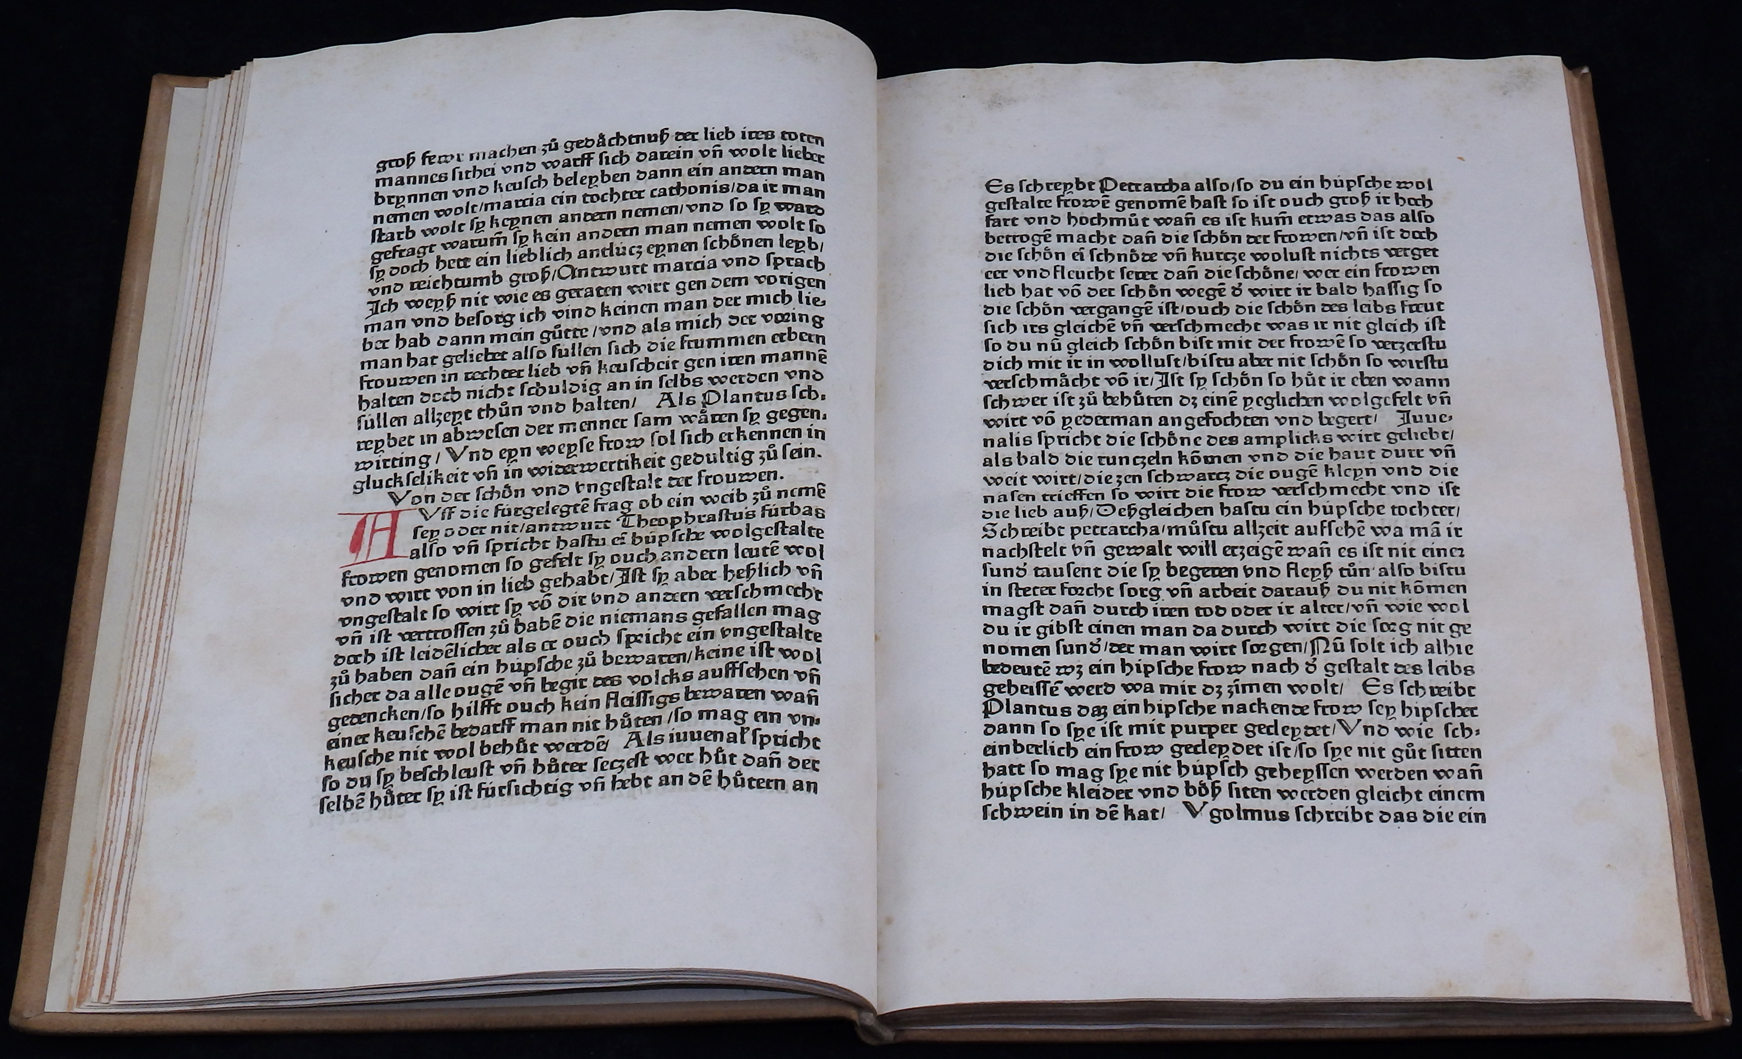 groß fewr machen zů gedåchtnuß der lieb ires toten
mannes sithei vnd warff sich darein vñ wolt lieber
brynnen vnd keusch beleyben dann ein andern man
nemen wolt/marcia ein tochter cathonis/da ir man
starb wolt sy keynen andern nemen/vnd so sy ward
gefragt warum̃ sy kein andern man nemen wolt so
sy doch hett ein lieblich antlúcz eynen schőnen leyb/
vnd reichtumb groß/Antwurt marcia vnd sprach
Ich weyß nit wie es geraten wirt gen dem vorigen
man vnd besorg ich vind keinen man der mich lie⸗
ber hab dann mein gůtte/vnd als mich der voring
man hat geliebet also súllen sich die frummen erbern
frouwen in rechter lieb vñ keuscheit gen iren mannẽ
halten doch nicht schuldig an in selbs werden vnd
súllen allzeyt thůn vnd halten/ Als Plantus sch⸗
reybet in abwesen der menner sam wåren sy gegen⸗
wirting/Vnd eyn weyse frow sol sich erkennen in
gluckselikeit vñ in widerwertikeit gedultig zů sein.
Von der schőn vnd vngestalt der frouwen.
AVff die fúrgelegtẽ frag ob ein weib zů nemẽ
sey oder nit/antwurt Theophrastus fúrbas
also vñ spricht hastu eĩ húpsche wolgestalte
frowen genomen so gefelt sy ouch andern leutẽ wol
vnd wirt von in lieb gehabt/Ist sy aber heßlich vñ
vngestalt so wirt sy võ dir vnd andern verschmecht
vñ ist vertrossen zů habẽ die niemans gefallen mag
doch ist leidẽlicher als er ouch spricht ein vngestalte
zů haben dañ ein húpsche zů bewaren/keine ist wol
sicher da alle ougẽ vñ begir des volcks auffsehen vñ
gedencken/so hilfft ouch kein fleissigs bewaren wañ
einer keuschẽ bedarff man nit hůten/so mag ein vn⸗
keusche nit wol behůt werdẽ/ Als iuuenal spricht
so du sy beschleust vñ hůter seczest wer hůt dañ der
selbẽ hůter sy ist fúrsichtig vñ hebt an dẽ hůtern an
Es schreybt Petrarcha also/so du ein húpsche wol
gestalte frowẽ genomẽ hast so ist ouch groß ir hoch
fart vnd hochmůt wañ es ist kum̃ etwas das also
betrogẽ macht dañ die schőn der frowen/vñ ist doch
die schőn eĩ schnőde vñ kurtze wolust nichts verget
eer vnd fleucht serer dañ die schőne/wer ein frowen
lieb hat võ der schőn wegẽ ð wirt ir bald hassig so
die schőn vergangẽ ist/ouch die schőn des leibs freut
sich irs gleichẽ vñ verschmecht was ir nit gleich ist
so du nũ gleich schőn bist mit der frowẽ so verzerstu
dich mit ir in wollust/bistu aber nit schőn so wirstu
verschmåcht võ ir/Ist sy schőn so hůt ir eben wann
schwer ist zů behůten dz einẽ yeglichen wolgefelt vñ
wirt võ yederman angefochten vnd begert/ Iuue⸗
nalis spricht die schőne des amplicks wirt geliebt/
als bald die runczeln kőmen vnd die haut dúrr vñ
weit wirt/die zen schwartz die ougẽ kleyn vnd die
nasen trieffen so wirt die frow verschmecht vnd ist
die lieb auß/Deßgleichen hastu ein húpsche tochter/
Schreibt petrarcha/můstu allzeit auffsehẽ wa mã ir
nachstelt vñ gewalt will erzeigẽ wañ es ist nit einer
sunð tausent die sy begeren vnd fleyß tůn also bistu
in steter forcht sorg vñ arbeit darauß du nit kőmen
magst dañ durch iren tod oder ir alter/vñ wie wol
du ir gibst einen man da durch wirt die sorg nit ge
nomen sunð/der man wirt sorgen/Nũ solt ich alhie
bedeutẽ wz ein hipsche frow nach ð gestalt des leibs
geheissẽ werd wa mir dz zĩmen wolt/ Es schreibt
Plantus daz ein hipsche nackende frow sey hipscher
dann so sye ist mit purper gecleydet/Vnd wie sch⸗
einberlich ein frow gecleydet ist/so sye nit gůt sitten
hatt so mag sye nit húpsch geheyssen werden wañ
húpsche kleider vnd bőß siten werden gleicht einem
schwein in dẽ kat/ Vgolmus schreibt das die ein